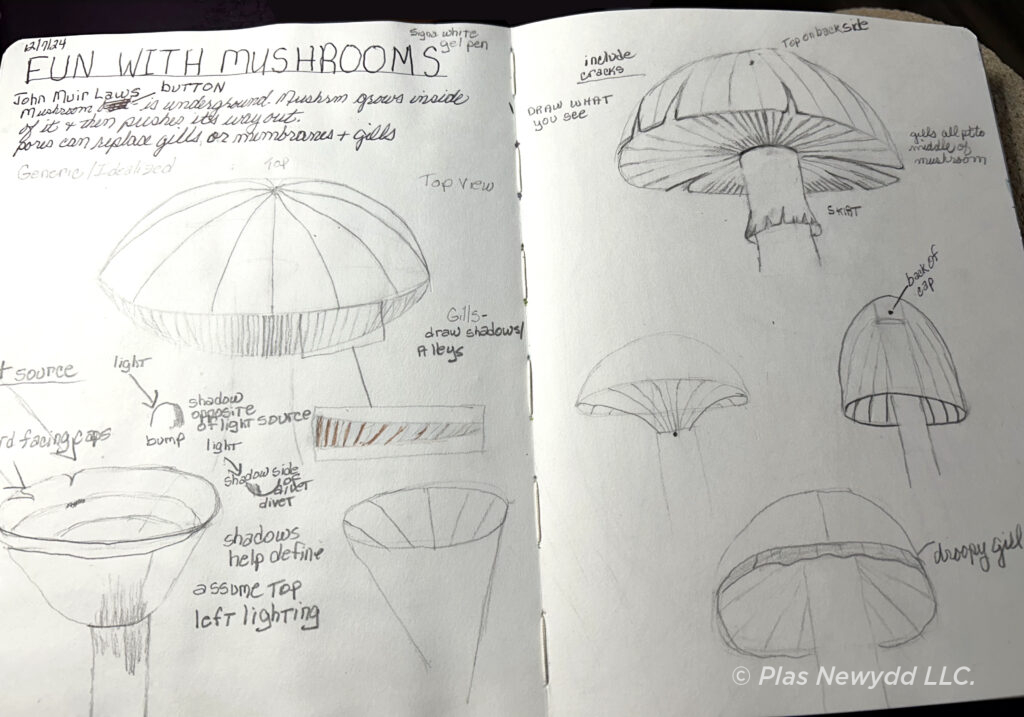 12/7/24
Signa white
gel pen
FUN WITH MUSHROOMS
John Muir Laws BUTTON
Mushroom is underground. Mushrm grows inside
of it & then pushes it's way out.
pores can replace gills, or membranes + gills
Generic/Idealized
Top
Top View
Gills-
draw shadows/
Alleys
light
shadow
opposite
of light source
bump
light
shadow side
of divet
divet
source
facing caps
shadows
help define
assume TOP
left lighting
include
cracks
Top on back side
DRAW WHAT
YOU SEE
gills all pt to
middle of
mushroom
SKIRT
back of
cap
droopy gill
© Plas Newydd LLC.